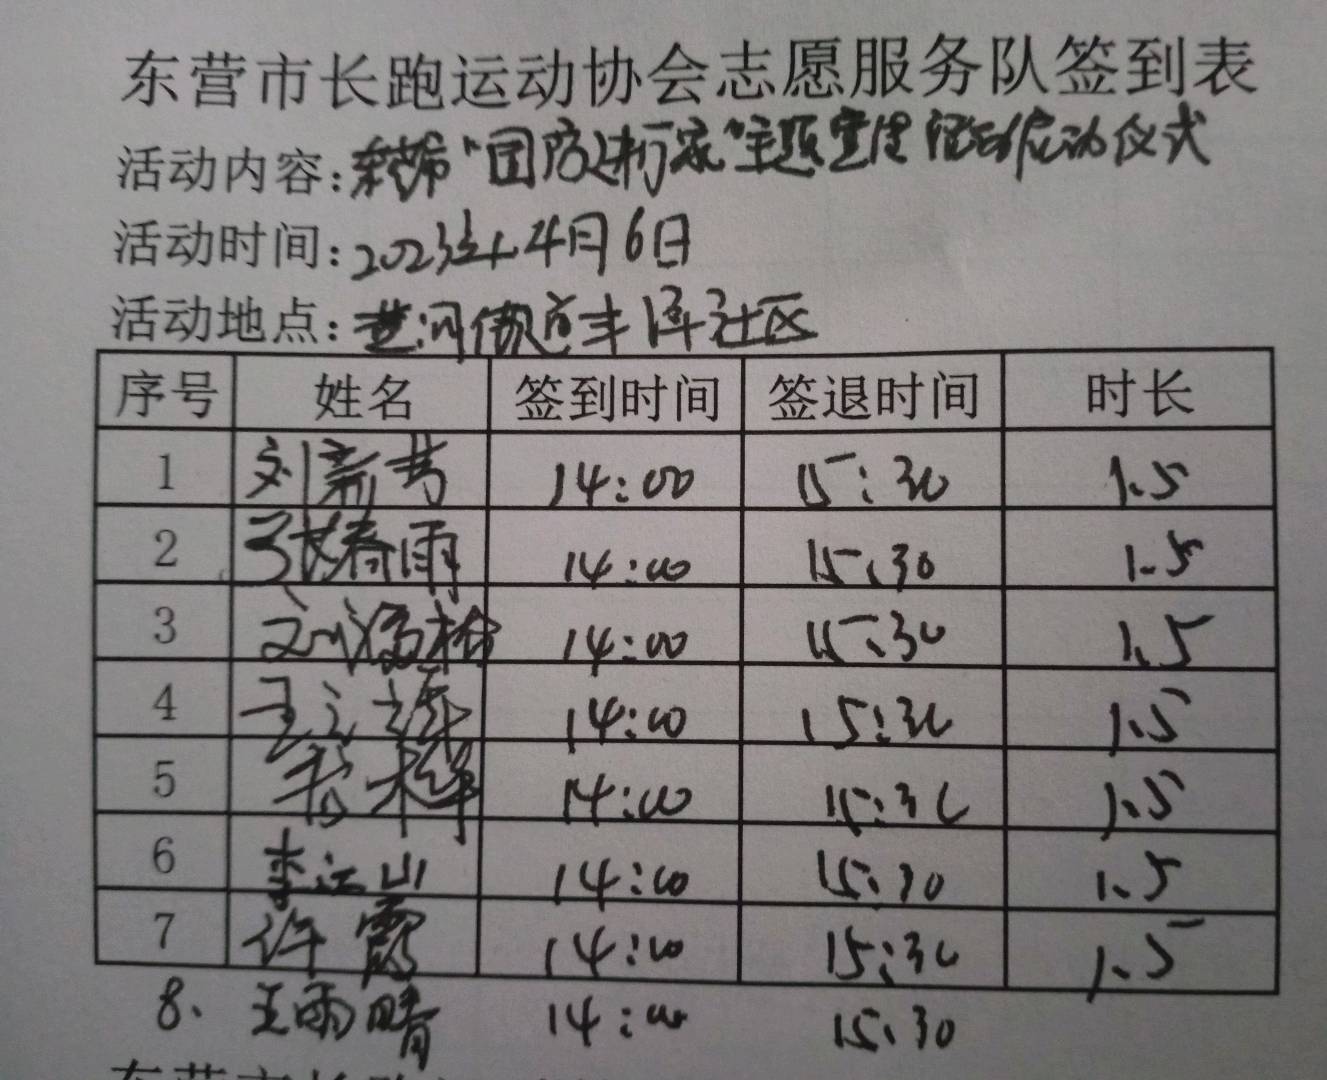 东营市长跑运动协会志愿服务队签到表
活动内容: "国防进万家"主题宣传活动启动仪式
活动时间: 2023年4月6日
活动地点: 黄河街道丰泽社区
序号 姓名 签到时间 签退时间 时长
1 刘新芳 14:00 15:30 1.5
2 张春雨 14:00 15:30 1.5
3 刘 14:00 15:30 1.5
4 王 14:00 15:30 1.5
5 14:00 15:30 1.5
6 李江山 14:00 15:30 1.5
7 许霞 14:00 15:30 1.5
8、 王雨晴 14:00 15:30